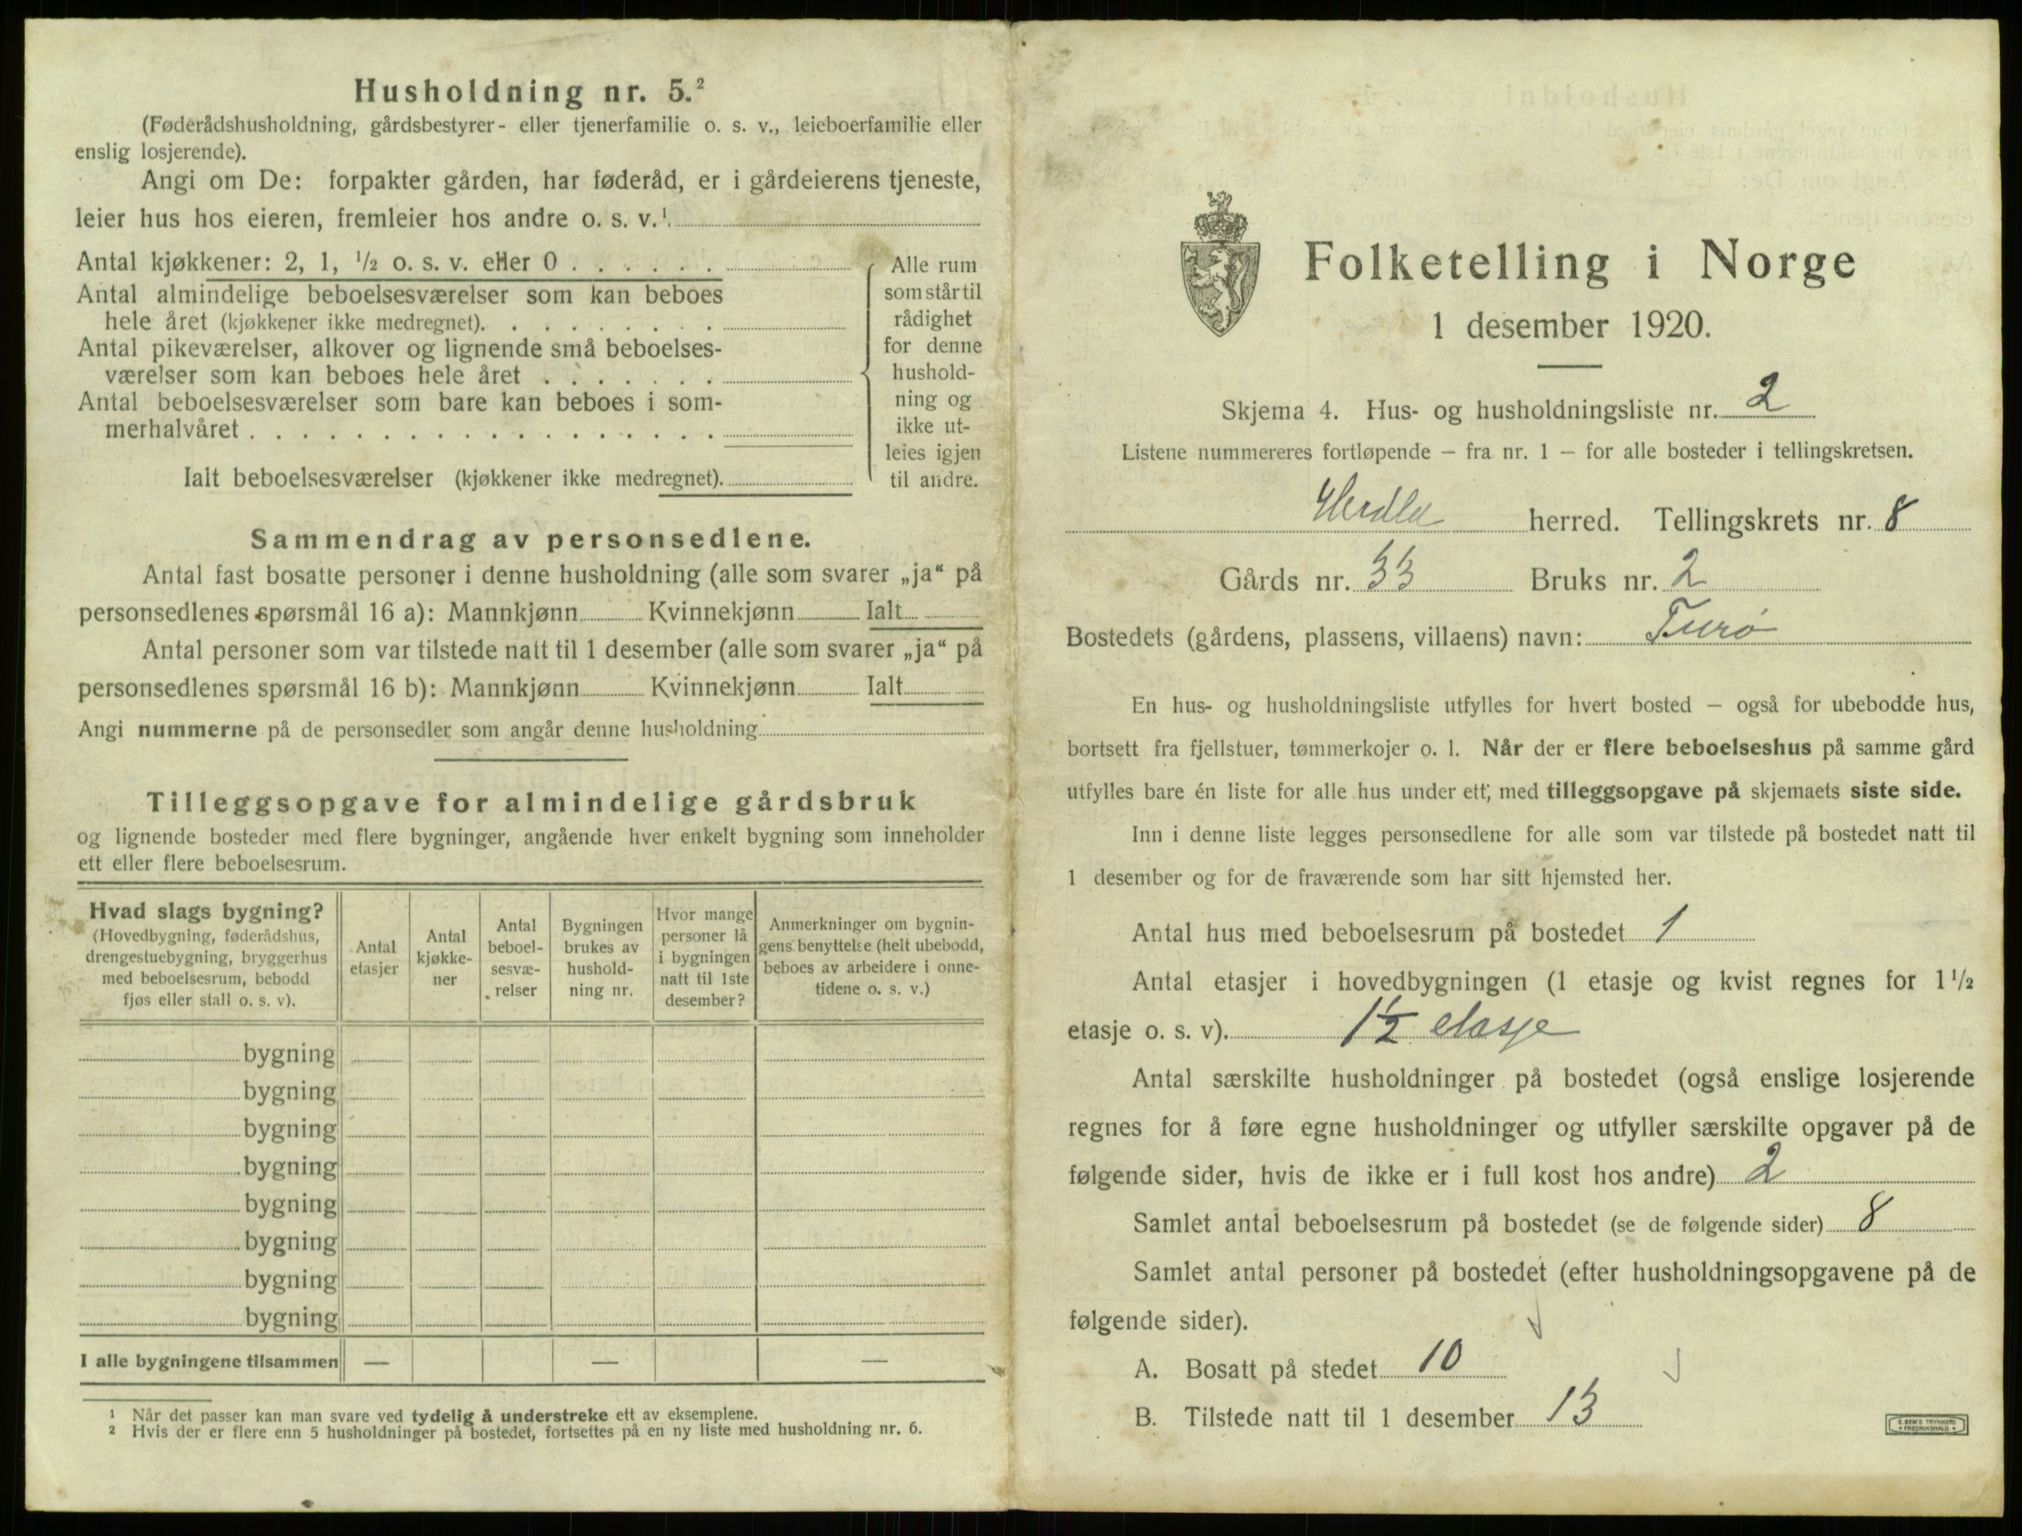 Husholdning nr. 5.²
(Føderådshusholdning, gårdsbestyrer- eller tjenerfamilie o. s. v., leieboerfamilie eller
enslig losjerende).
Angi om De: forpakter gården, har føderåd, er i gårdeierens tjeneste,
leier hus hos eieren, fremleier hos andre o. s. v.¹
Antal kjøkkener: 2, 1, ½ o. s. v. eller 0 . . . . . .
Antal almindelige beboelsesværelser som kan beboes
hele året (kjøkkener ikke medregnet). . . . . . . . .
Antal pikeværelser, alkover og lignende små beboelses-
værelser som kan beboes hele året . . . . . . .
Antal beboelsesværelser som bare kan beboes i som-
merhalvåret . . . . . . . . . . . . . . . . . .
Ialt beboelsesværelser (kjøkkener ikke medregnet).
Alle rum
som står til
rådighet
for denne
hushold-
ning og
ikke ut-
leies igjen
til andre.
Sammendrag av personsedlene.
Antal fast bosatte personer i denne husholdning (alle som svarer „ja“ på
personsedlenes spørsmål 16 a): Mannkjønn Kvinnekjønn Ialt
Antal personer som var tilstede natt til 1 desember (alle som svarer „ja“ på
personsedlenes spørsmål 16 b): Mannkjønn Kvinnekjønn Ialt
Angi nummerne på de personsedler som angår denne husholdning
Tilleggsopgave for almindelige gårdsbruk
og lignende bosteder med flere bygninger, angående hver enkelt bygning som inneholder
ett eller flere beboelsesrum.
Hvad slags bygning?
(Hovedbygning, føderådshus,
drengestuebygning, bryggerhus
med beboelsesrum, bebodd
fjøs eller stall o. s. v).
Antal
etasjer
Antal
kjøkke-
ner
Antal
beboel-
sesvæ-
relser
Bygningen
brukes av
hushold-
ning nr.
Hvor mange
personer lå
i bygningen
natt til 1ste
desember?
Anmerkninger om bygnin-
gens benyttelse (helt ubebodd,
beboes av arbeidere i onne-
tidene o. s. v.)
bygning
bygning
bygning
bygning
bygning
bygning
bygning
bygning
I alle bygningene tilsammen — — —
¹ Når det passer kan man svare ved tydelig å understreke ett av eksemplene.
² Hvis der er flere enn 5 husholdninger på bostedet, fortsettes på en ny liste med husholdning nr. 6.
Folketelling i Norge
1 desember 1920.
Skjema 4. Hus- og husholdningsliste nr. 2
Listene nummereres fortløpende – fra nr. 1 – for alle bosteder i tellingskretsen.
Herdla herred. Tellingskrets nr. 8
Gårds nr. 33 Bruks nr. 2
Bostedets (gårdens, plassens, villaens) navn: Turø
En hus- og husholdningsliste utfylles for hvert bosted – også for ubebodde hus,
bortsett fra fjellstuer, tømmerkojer o. l. Når der er flere beboelseshus på samme gård
utfylles bare én liste for alle hus under ett, med tilleggsopgave på skjemaets siste side.
Inn i denne liste legges personsedlene for alle som var tilstede på bostedet natt til
1 desember og for de fraværende som har sitt hjemsted her.
Antal hus med beboelsesrum på bostedet 1
Antal etasjer i hovedbygningen (1 etasje og kvist regnes for 1 ½
etasje o. s. v). 1½ etasje
Antal særskilte husholdninger på bostedet (også enslige losjerende
regnes for å føre egne husholdninger og utfyller særskilte opgaver på de
følgende sider, hvis de ikke er i full kost hos andre) 2
Samlet antal beboelsesrum på bostedet (se de følgende sider) 8
Samlet antal personer på bostedet (efter husholdningsopgavene på de
følgende sider).
A. Bosatt på stedet 10
B. Tilstede natt til 1 desember 13